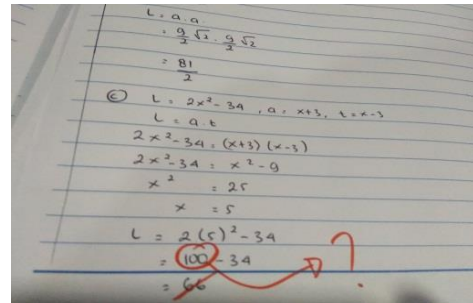 L = a.a.
= 9/2 √2 . 9/2 √2
= 81/2
ⓒ L = 2x² - 34 , a = x+3, t = x-3
L = a.t
2x² - 34 = (x+3) (x-3)
2x² - 34 = x² - 9
x² = 25
x = 5
L = 2(5)² - 34
= 100 - 34 ?
= 66